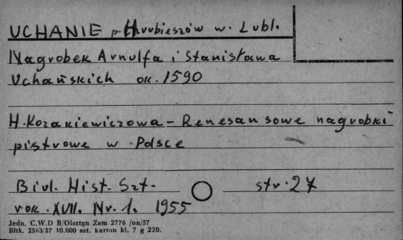 UCHANIE p. Hrubieszów w. Lubl.
Nagrobek Arnulfa i Stanisława
Uchańskich ok. 1590
H. Kozakiewiczowa - Renesansowe nagrobki
piętrowe w Polsce
Biul. Hist. Szt. str. 27
rok XVII. Nr. 1. 1955
Jedn. C.W.D B/Olsztyn Zam 2776 /on/57
Bltk. 2563/57 10.000 szt. karton kl. 7 g 220.